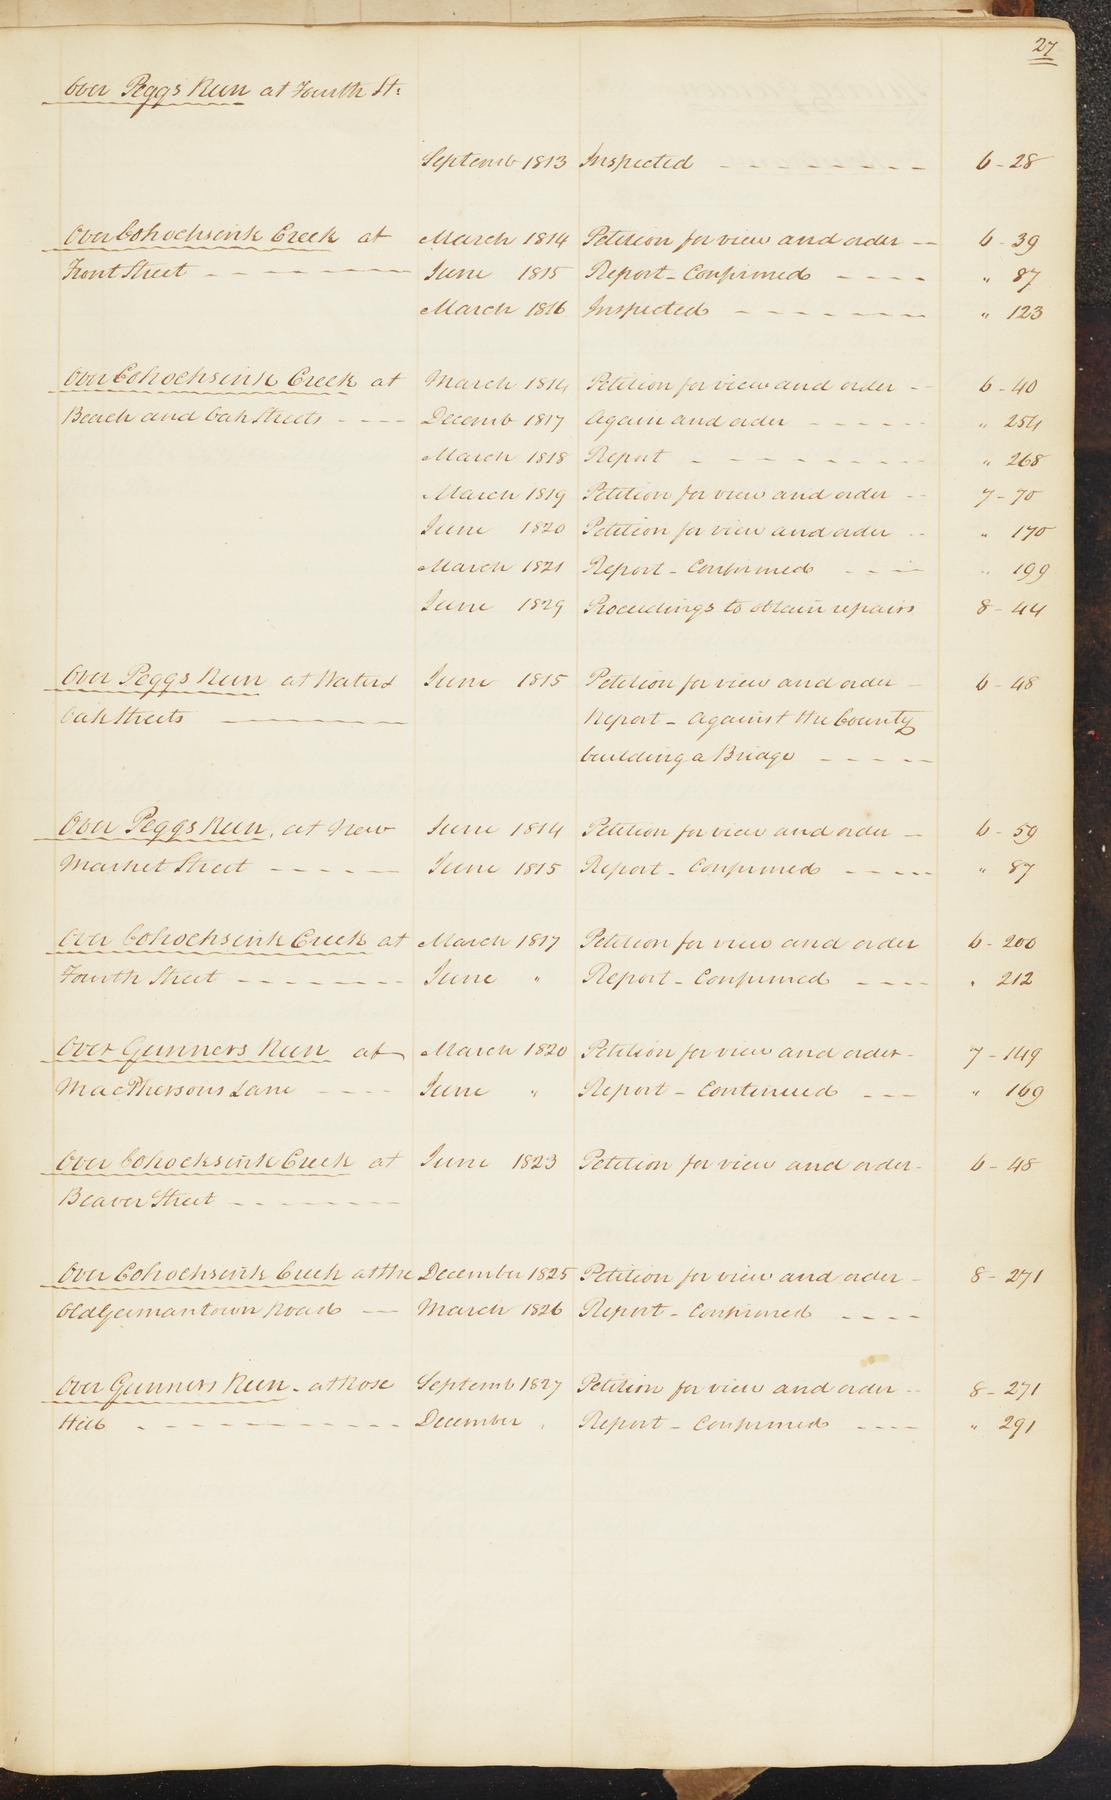 27
Over Peggs Run at Fourth St:
Septemb 1813 Inspected - - - - - - - - 6-28
Over Cohocksink Creek at March 1814 Petition for view and order -- 6-39
Front Street - - - - - - - June 1815 Report - Confirmed - - - - " 87
March 1816 Inspected - - - - - - - " 123
Over Cohocksink Creek at March 1814 Petition for view and order -- 6-40
Beach and Oak Streets - - - - Decemb 1817 Again and order - - - - - " 254
March 1818 Report - - - - - - - " 268
March 1819 Petition for view and order -- 7-70
June 1820 Petition for view and order -- " 170
March 1821 Report - Confirmed - - - " 199
June 1829 Proceedings to obtain repairs 8-44
Over Peggs Run at Water & June 1815 Petition for view and order - 6-48
Oak Streets - - - - - - - Report - Against the County
building a Bridge - - - - -
Over Peggs Run, at New June 1814 Petition for view and order - 6-59
Market Street - - - - - June 1815 Report - Confirmed - - - - " 87
Over Cohocksink Creek at March 1817 Petition for view and order 6-200
Fourth Street - - - - - - - June " Report - Confirmed - - - - " 212
Over Gunners Run at March 1820 Petition for view and order - 7-149
MacPhersons Lane - - - - June " Report - Continued - - - " 169
Over Cohocksink Creek at June 1823 Petition for view and order - 6-48
Beaver Street - - - - - - -
Over Cohocksink Creek at the December 1825 Petition for view and order - 8-271
Old Germantown Road - - March 1826 Report - Confirmed - - - -
Over Gunners Run - at Rose Septemb 1827 Petition for view and order -- 8-271
Hill - - - - - - - - - - December " Report - Confirmed - - - - " 291